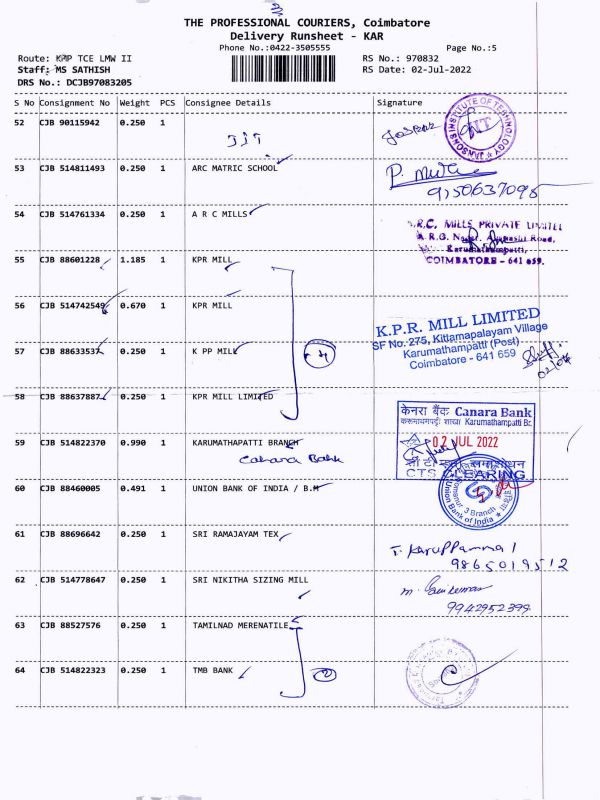 THE PROFESSIONAL COURIERS, Coimbatore
Delivery Runsheet - KAR
Phone No.:0422-3505555
Page No.:5
Route: KMP TCE LMW II
RS No.: 970832
Staff: MS SATHISH
RS Date: 02-Jul-2022
DRS No.: DCJB97083205
S No Consignment No Weight PCS Consignee Details Signature
52 CJB 90115942 0.250 1
JJT
INSTITUTE OF TECHNOLOGY
53 CJB 514811493 0.250 1 ARC MATRIC SCHOOL
9150637095
54 CJB 514761334 0.250 1 A R C MILLS
A.R.C. MILLS PRIVATE LIMITED
Karumathampatti,
COIMBATORE - 641 659.
55 CJB 88601228 1.185 1 KPR MILL
56 CJB 514742549 0.670 1 KPR MILL
K.P.R. MILL LIMITED
SF No. 275, Kittamapalayam Village
Karumathampatti (Post)
Coimbatore - 641 659
57 CJB 88633537 0.250 1 K PP MILL
4
58 CJB 88637887 0.250 1 KPR MILL LIMITED
केनरा बैंक Canara Bank
Karumathampatti Br.
59 CJB 514822370 0.990 1 KARUMATHAPATTI BRANCH
Canara Bank
02 JUL 2022
CTS CLEARING
60 CJB 88460005 0.491 1 UNION BANK OF INDIA / B.M
Somanur Branch
Union Bank of India
61 CJB 88696642 0.250 1 SRI RAMAJAYAM TEX
T. Karuppammal
9865019512
62 CJB 514778647 0.250 1 SRI NIKITHA SIZING MILL
9942952399
63 CJB 88527576 0.250 1 TAMILNAD MERENATILE
64 CJB 514822323 0.250 1 TMB BANK
2